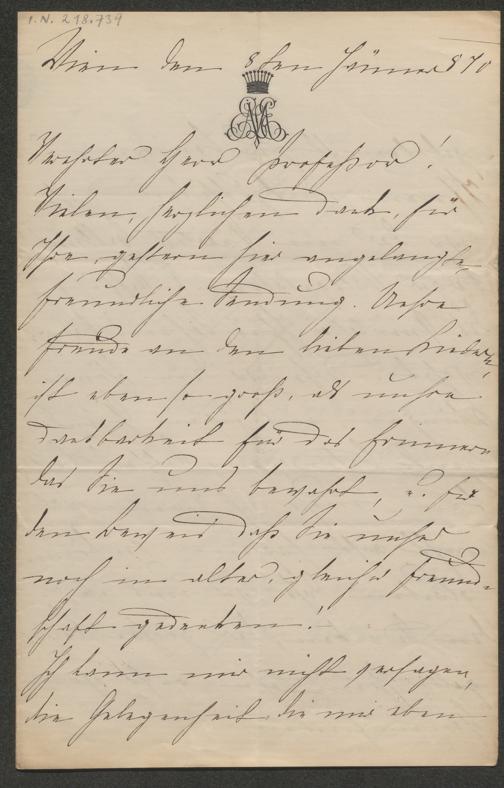 I.N. 218.734
Wien den 8ten Jänner 870
Verehrter Herr Professor!
Vielen, herzlichen Dank, für
Ihre, gestern hier angelangte,
freundliche Sendung. Unsre
Freude an den lieben Liedern,
ist eben so groß, als unsre
Dankbarkeit für das Erinnern
das Sie uns bewahrt, u. für
den Beweis daß Sie unser
noch in alter, gleicher Freund-
schaft gedenken!
Ich kann mir nicht versagen,
die Gelegenheit die mir eben